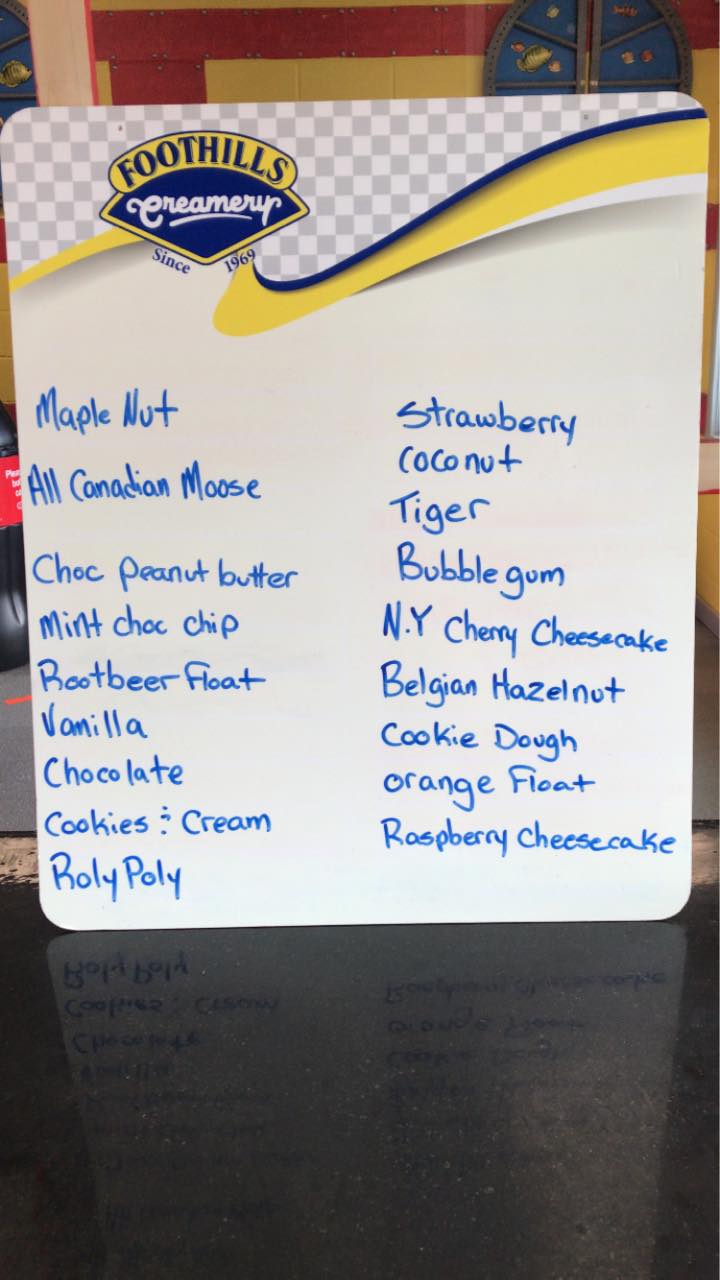 FOOTHILLS
Creamery
Since 1969
Maple Nut
All Canadian Moose
Choc Peanut butter
Mint choc chip
Rootbeer Float
Vanilla
Chocolate
Cookies & Cream
Roly Poly
Strawberry
Coconut
Tiger
Bubblegum
N.Y Cherry Cheesecake
Belgian Hazelnut
Cookie Dough
orange Float
Raspberry Cheesecake